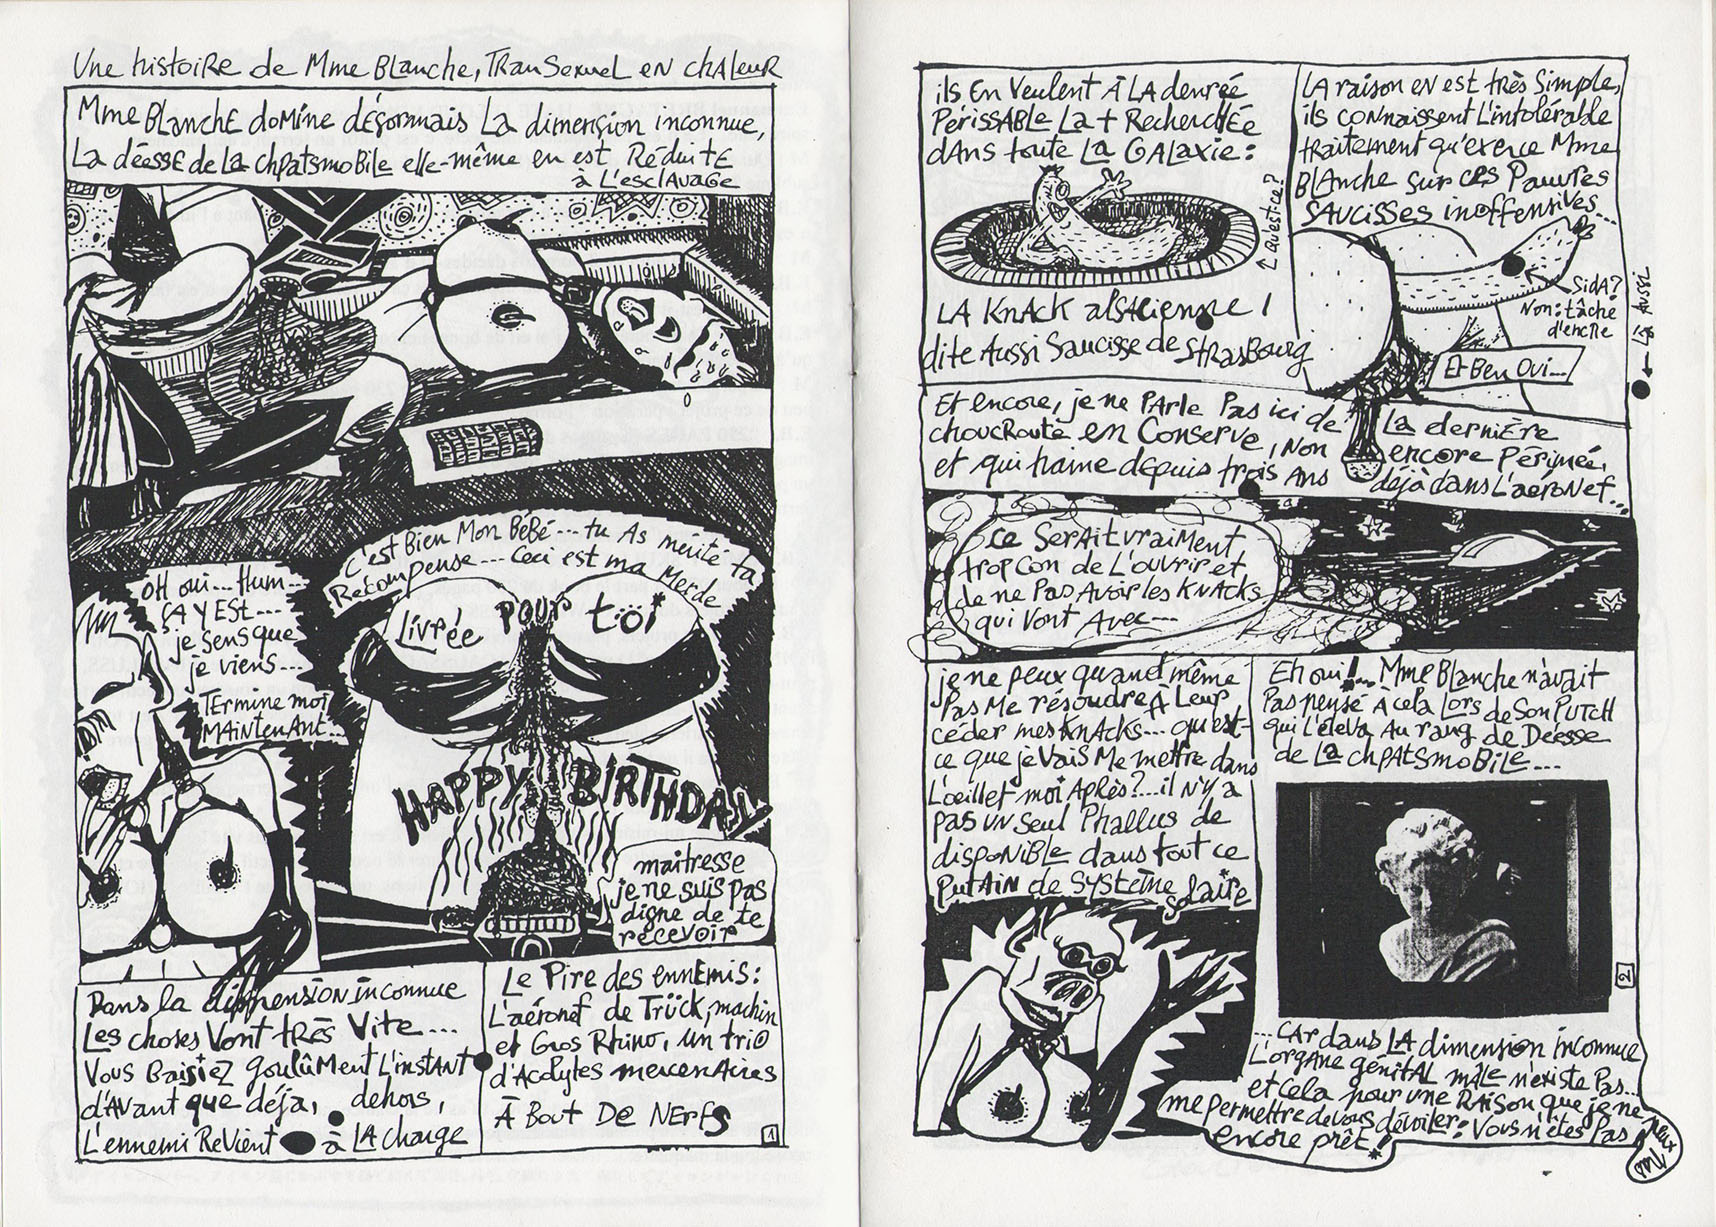 Une histoire de Mme Blanche, Transexuel en chaleur
Mme Blanche domine désormais la dimension inconnue,
La déesse de la chpatsmobile elle-même en est réduite
à l'esclavage
OH oui... Hum...
ÇA Y EST...
je sens que
je viens...
TERMINE moi
MAINTENANT...
C'est Bien Mon Bébé... tu As mérité ta
Récompense... Ceci est ma Merde
Livrée pour töi
HAPPY BIRTHDAY
maitresse
je ne suis pas
digne de te
recevoir
Dans la dimension inconnue
Les choses Vont très Vite...
Vous Baisiez goulûment L'instant
d'Avant que déjà, dehors,
L'ennemi Revient à LA charge
Le Pire des ennemis:
L'aéronef de Trück, machin
et Gros Rhino, un trio
d'Acolytes mercenaires
À Bout De Nerfs
1
ils En Veulent À LA denrée
Périssable La + Recherchée
dans toute La GALaxie:
Qu'est-ce?
LA KNACK alsacienne!
dite Aussi Saucisse de Strasbourg
LA raison en est très Simple,
ils connaissent L'intolérable
traitement qu'exerce Mme
Blanche sur ces Pauvres
Saucisses inoffensives...
SidA?
Non: tâche
d'encre
Là Aussi
Et Ben Oui...
Et encore, je ne Parle Pas ici de
choucroute en Conserve, Non
et qui traine depuis trois Ans
La dernière
encore Périmée,
déjà dans L'aéronef...
ce Serait vraiment
trop con de L'ouvrir et
de ne Pas Avoir les KNACKS
qui Vont Avec...
je ne peux quand même
Pas Me résoudre À Leur
céder mes KNACKs... qu'est-
ce que je Vais Me mettre dans
L'oeillet moi Après?... il N'y a
pas un seul Phallus de
disponible dans tout ce
Putain de Système solaire
Eh oui!... Mme Blanche n'avait
Pas pensé À cela Lors de Son PUTCH
qui L'éleva Au rang de Déesse
de La chpatsmobile...
2
...CAr dans LA dimension inconnue
L'organe génital mâle n'existe Pas...
et cela pour une Raison que je ne peux
me permettre de vous dévoiler: Vous n'êtes Pas
encore prêt!